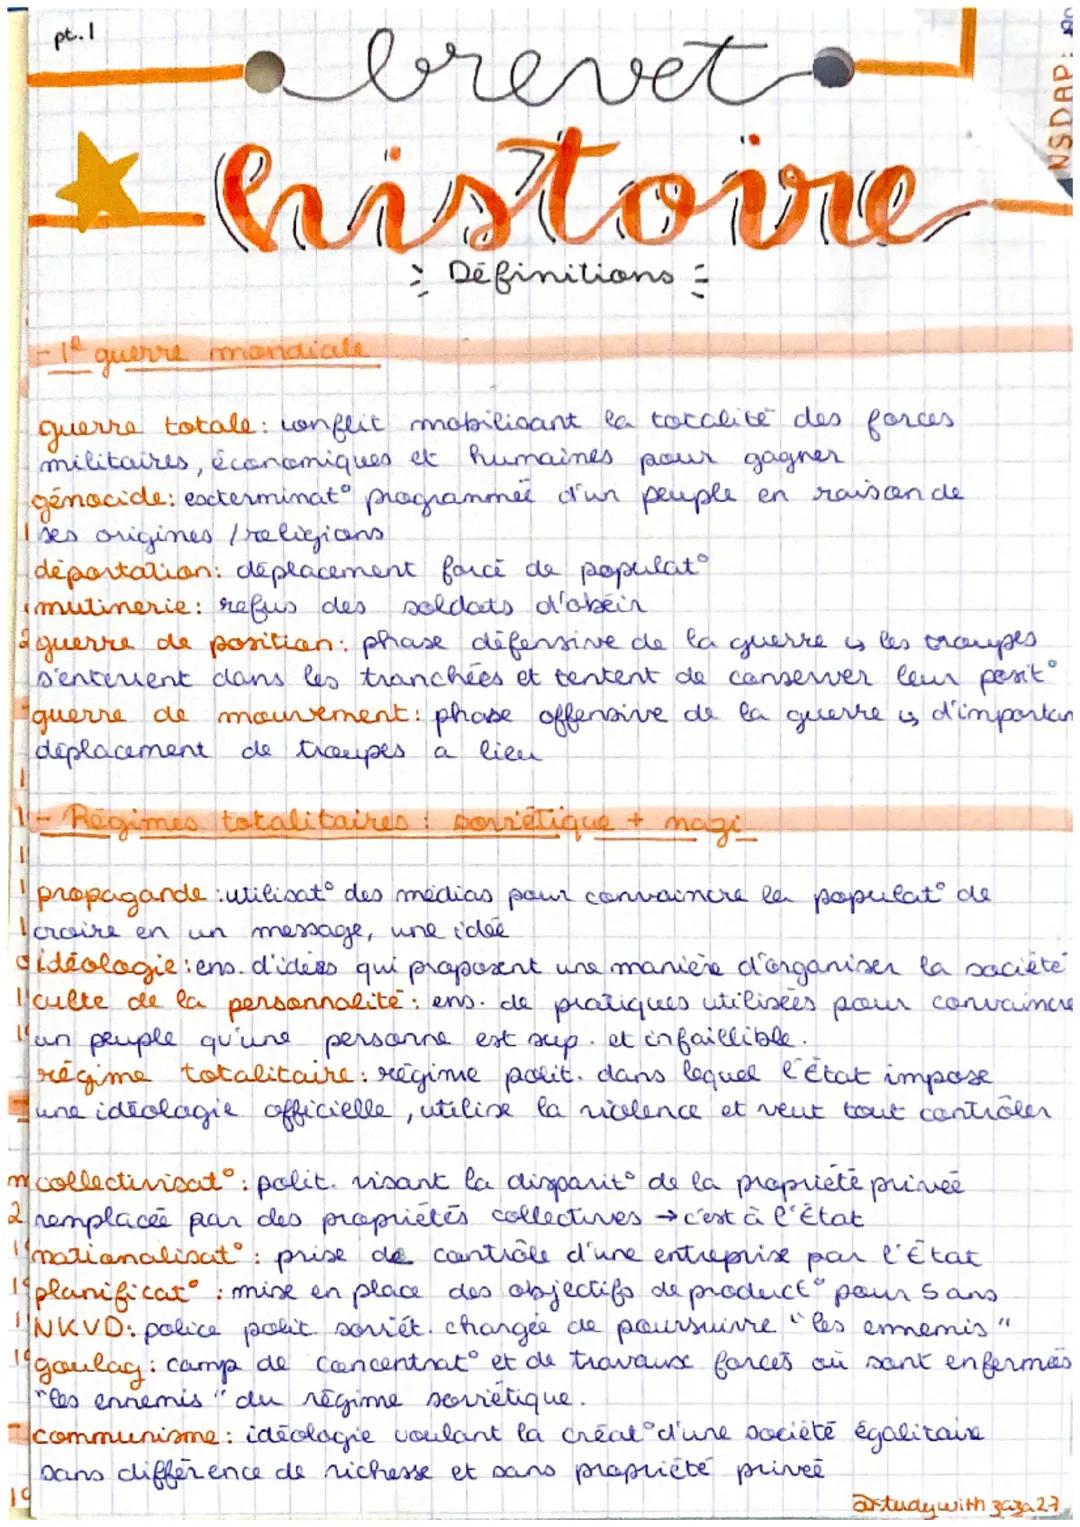 pt.1
brevet
histoire
Définitions
NSDAP:
- 1e guerre mondiale
guerre totale: conflit mobilisant la totalité des forces
militaires, économiques et humaines pour gagner
génocide: exterminat° programmée d'un peuple en raison de
ses origines / religions
déportation: déplacement forcé de populat°
mutinerie: refus des soldats d'obéir
guerre de position: phase défensive de la guerre ↳ les troupes
s'enterrent dans les tranchées et tentent de conserver leur posit°
guerre de mouvement: phase offensive de la guerre ↳ d'importan
déplacement de troupes a lieu
- Régimes totalitaires: soviétique + nazi
propagande: utilisat° des médias pour convaincre la populat° de
croire en un message, une idée
idéologie: ens. d'idées qui proposent une manière d'organiser la société
culte de la personnalité: ens. de pratiques utilisées pour convaincre
un peuple qu'une personne est sup. et infaillible.
régime totalitaire: régime polit. dans lequel l'État impose
une idéologie officielle, utilise la violence et veut tout contrôler
collectivisat°: polit. visant la disparit° de la propriété privée
remplacée par des propriétés collectives → c'est à l'État
nationalisat°: prise de contrôle d'une entreprise par l'État
planificat°: mise en place des objectifs de product° pour 5 ans
NKVD: police polit. soviét. chargée de poursuivre "les ennemis"
goulag: camp de concentrat° et de travaux forcés où sont enfermés
"les ennemis" du régime soviétique.
communisme: idéologie voulant la créat° d'une société égalitaire
sans différence de richesse et sans propriété privée
@studywith zaza27